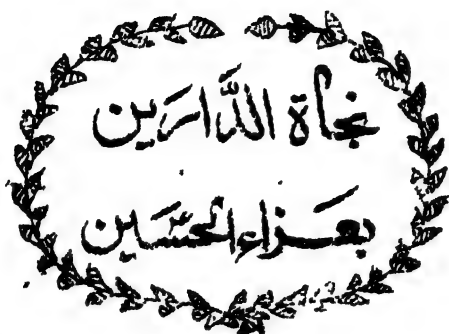 نجاة الدَّارَين
بعَزاءِ الحسَّين